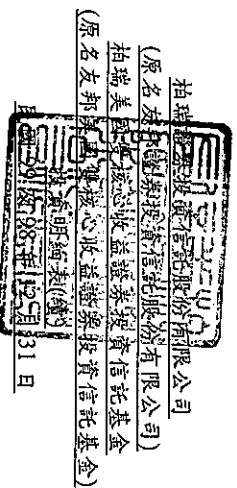 柏瑞證券投資信託股份有限公司
(原名友邦證券投資信託股份有限公司)
柏瑞美國雙核心收益證券投資信託基金
(原名友邦美國雙核心收益證券投資信託基金)
投資明細表(續)
民國99年及98年12月31日